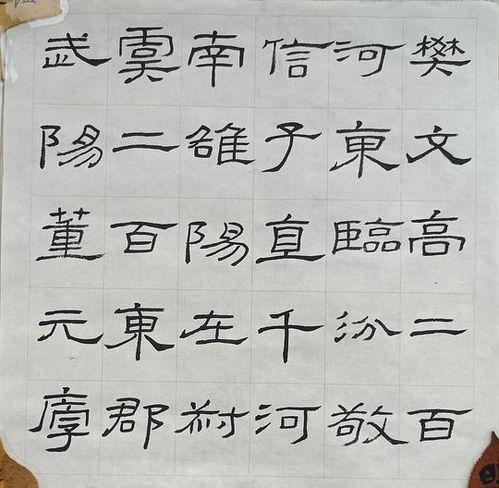 樊文高二百
河東臨汾敬
信子直千河
南雒陽左尉
虞二百東郡
武陽董元厚